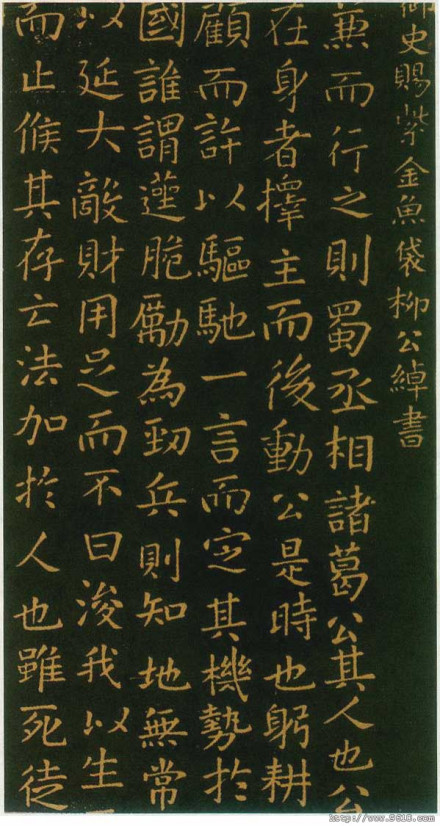 御史賜紫金魚袋柳公綽書
兼而行之則蜀丞相諸葛公其人也公
在身者擇主而後動公是時也躬耕
顧而許以驅馳一言而定其機勢於
國誰謂遳脆勵為勁兵則知地無常
以延大敵財用足而不曰浚我以生
而止候其存亡法加於人也雖死徒
http://www.9610.com